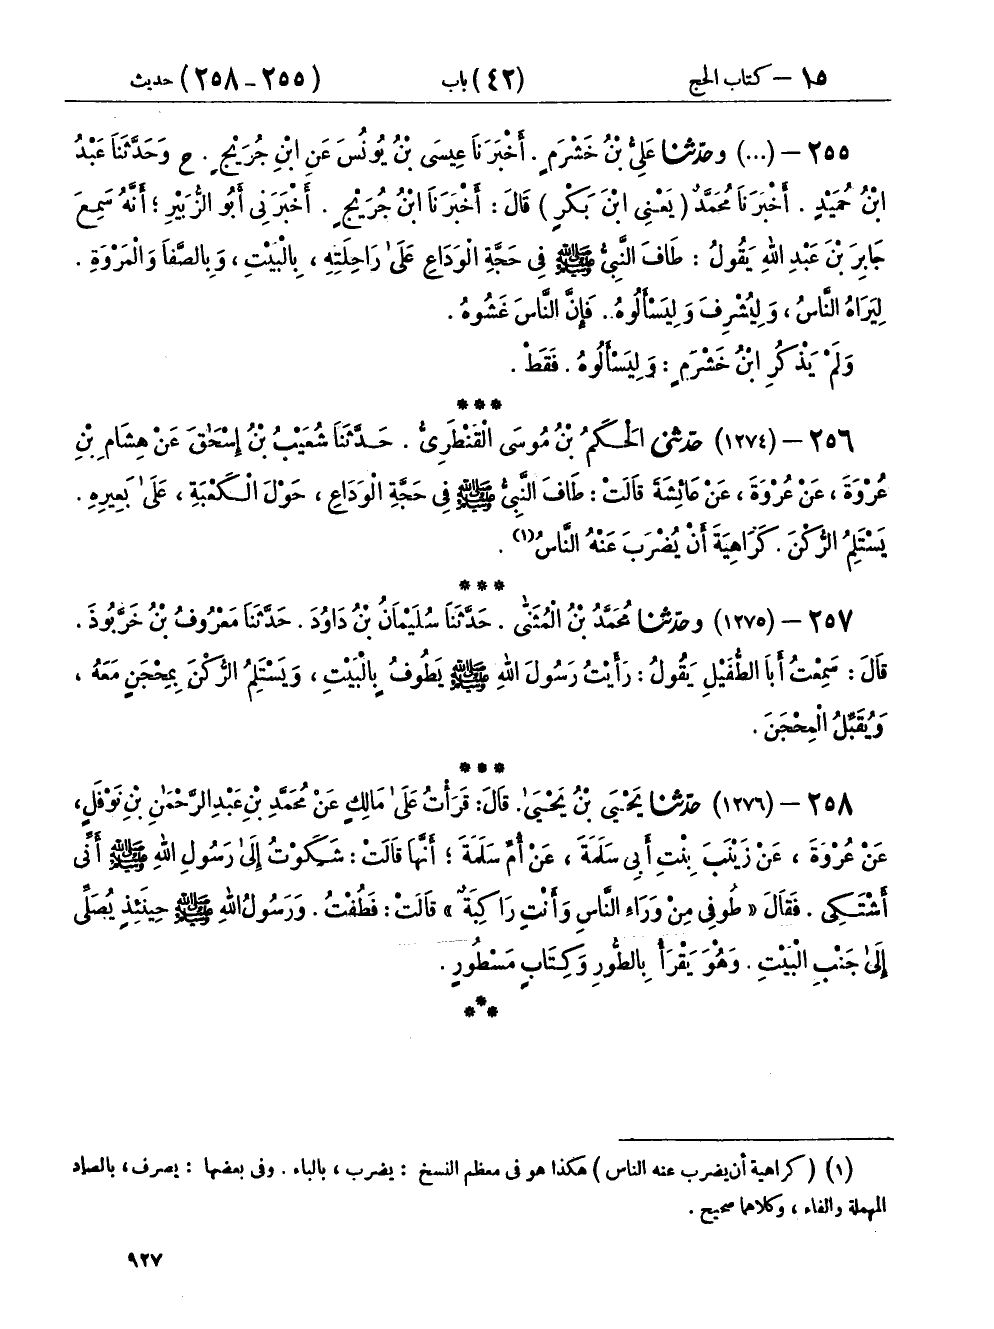 ١٥ – كتاب الحج (٤٢) باب (٢٥٥ – ٢٥٨) حديث
٢٥٥ – (...) وحَدَّثَنَا عَلِيُّ بْنُ خَشْرَمٍ . أَخْبَرَنَا عِيسَى بْنُ يُونُسَ عَنِ ابْنِ جُرَيْجٍ . ح وَحَدَّثَنَا عَبْدُ
ابْنُ حُمَيْدٍ . أَخْبَرَنَا مُحَمَّدٌ ( يَعْنِي ابْنَ بَكْرٍ ) قَالَ : أَخْبَرَنَا ابْنُ جُرَيْجٍ . أَخْبَرَنِي أَبُو الزُّبَيْرِ ؛ أَنَّهُ سَمِعَ
جَابِرَ بْنَ عَبْدِ اللهِ يَقُولُ : طَافَ النَّبِيُّ ﷺ فِي حَجَّةِ الْوَدَاعِ عَلَىٰ رَاحِلَتِهِ ، بِالْبَيْتِ ، وَبِالصَّفَا وَالْمَرْوَةِ .
لِيَرَاهُ النَّاسُ ، وَلِيُشْرِفَ وَلِيَسْأَلُوهُ . فَإِنَّ النَّاسَ غَشُوهُ .
وَلَمْ يَذْكُرِ ابْنُ خَشْرَمٍ : وَلِيَسْأَلُوهُ . فَقَطْ .
***
٢٥٦ – (١٢٧٤) حَدَّثَنِي الْحَكَمُ بْنُ مُوسَى الْقَنْطَرِيُّ . حَدَّثَنَا شُعَيْبُ بْنُ إِسْحَٰقَ عَنْ هِشَامِ بْنِ
عُرْوَةَ ، عَنْ عُرْوَةَ ، عَنْ عَائِشَةَ قَالَتْ : طَافَ النَّبِيُّ ﷺ فِي حَجَّةِ الْوَدَاعِ ، حَوْلَ الْكَعْبَةِ ، عَلَىٰ بَعِيرِهِ .
يَسْتَلِمُ الرُّكْنَ . كَرَاهِيَةَ أَنْ يُضْرَبَ عَنْهُ النَّاسُ(١) .
***
٢٥٧ – (١٢٧٥) وحَدَّثَنَا مُحَمَّدُ بْنُ الْمُثَنَّىٰ . حَدَّثَنَا سُلَيْمَانُ بْنُ دَاوُدَ . حَدَّثَنَا مَعْرُوفُ بْنُ خَرَّبُوذَ .
قَالَ : سَمِعْتُ أَبَا الطُّفَيْلِ يَقُولُ : رَأَيْتُ رَسُولَ اللهِ ﷺ يَطُوفُ بِالْبَيْتِ ، وَيَسْتَلِمُ الرُّكْنَ بِمِحْجَنٍ مَعَهُ ،
وَيُقَبِّلُ الْمِحْجَنَ .
***
٢٥٨ – (١٢٧٦) حَدَّثَنَا يَحْيَى بْنُ يَحْيَىٰ . قَالَ : قَرَأْتُ عَلَىٰ مَالِكٍ عَنْ مُحَمَّدِ بْنِ عَبْدِ الرَّحْمَٰنِ بْنِ نَوْفَلٍ ،
عَنْ عُرْوَةَ ، عَنْ زَيْنَبَ بِنْتِ أَبِي سَلَمَةَ ، عَنْ أُمِّ سَلَمَةَ ؛ أَنَّهَا قَالَتْ : شَكَوْتُ إِلَىٰ رَسُولِ اللهِ ﷺ أَنِّي
أَشْتَكِي . فَقَالَ « طُوفِي مِنْ وَرَاءِ النَّاسِ وَأَنْتِ رَاكِبَةٌ » قَالَتْ : فَطُفْتُ . وَرَسُولُ اللهِ ﷺ حِينَئِذٍ يُصَلِّي
إِلَىٰ جَنْبِ الْبَيْتِ . وَهُوَ يَقْرَأُ بِالطُّورِ وَكِتَابٍ مَسْطُورٍ .
***
(١) ( كراهية أن يضرب عنه الناس ) هكذا هو في معظم النسخ : يضرب ، بالباء . وفي بعضها : يصرف ، بالصاد
المهملة والفاء ، وكلاهما صحيح .
٩٢٧